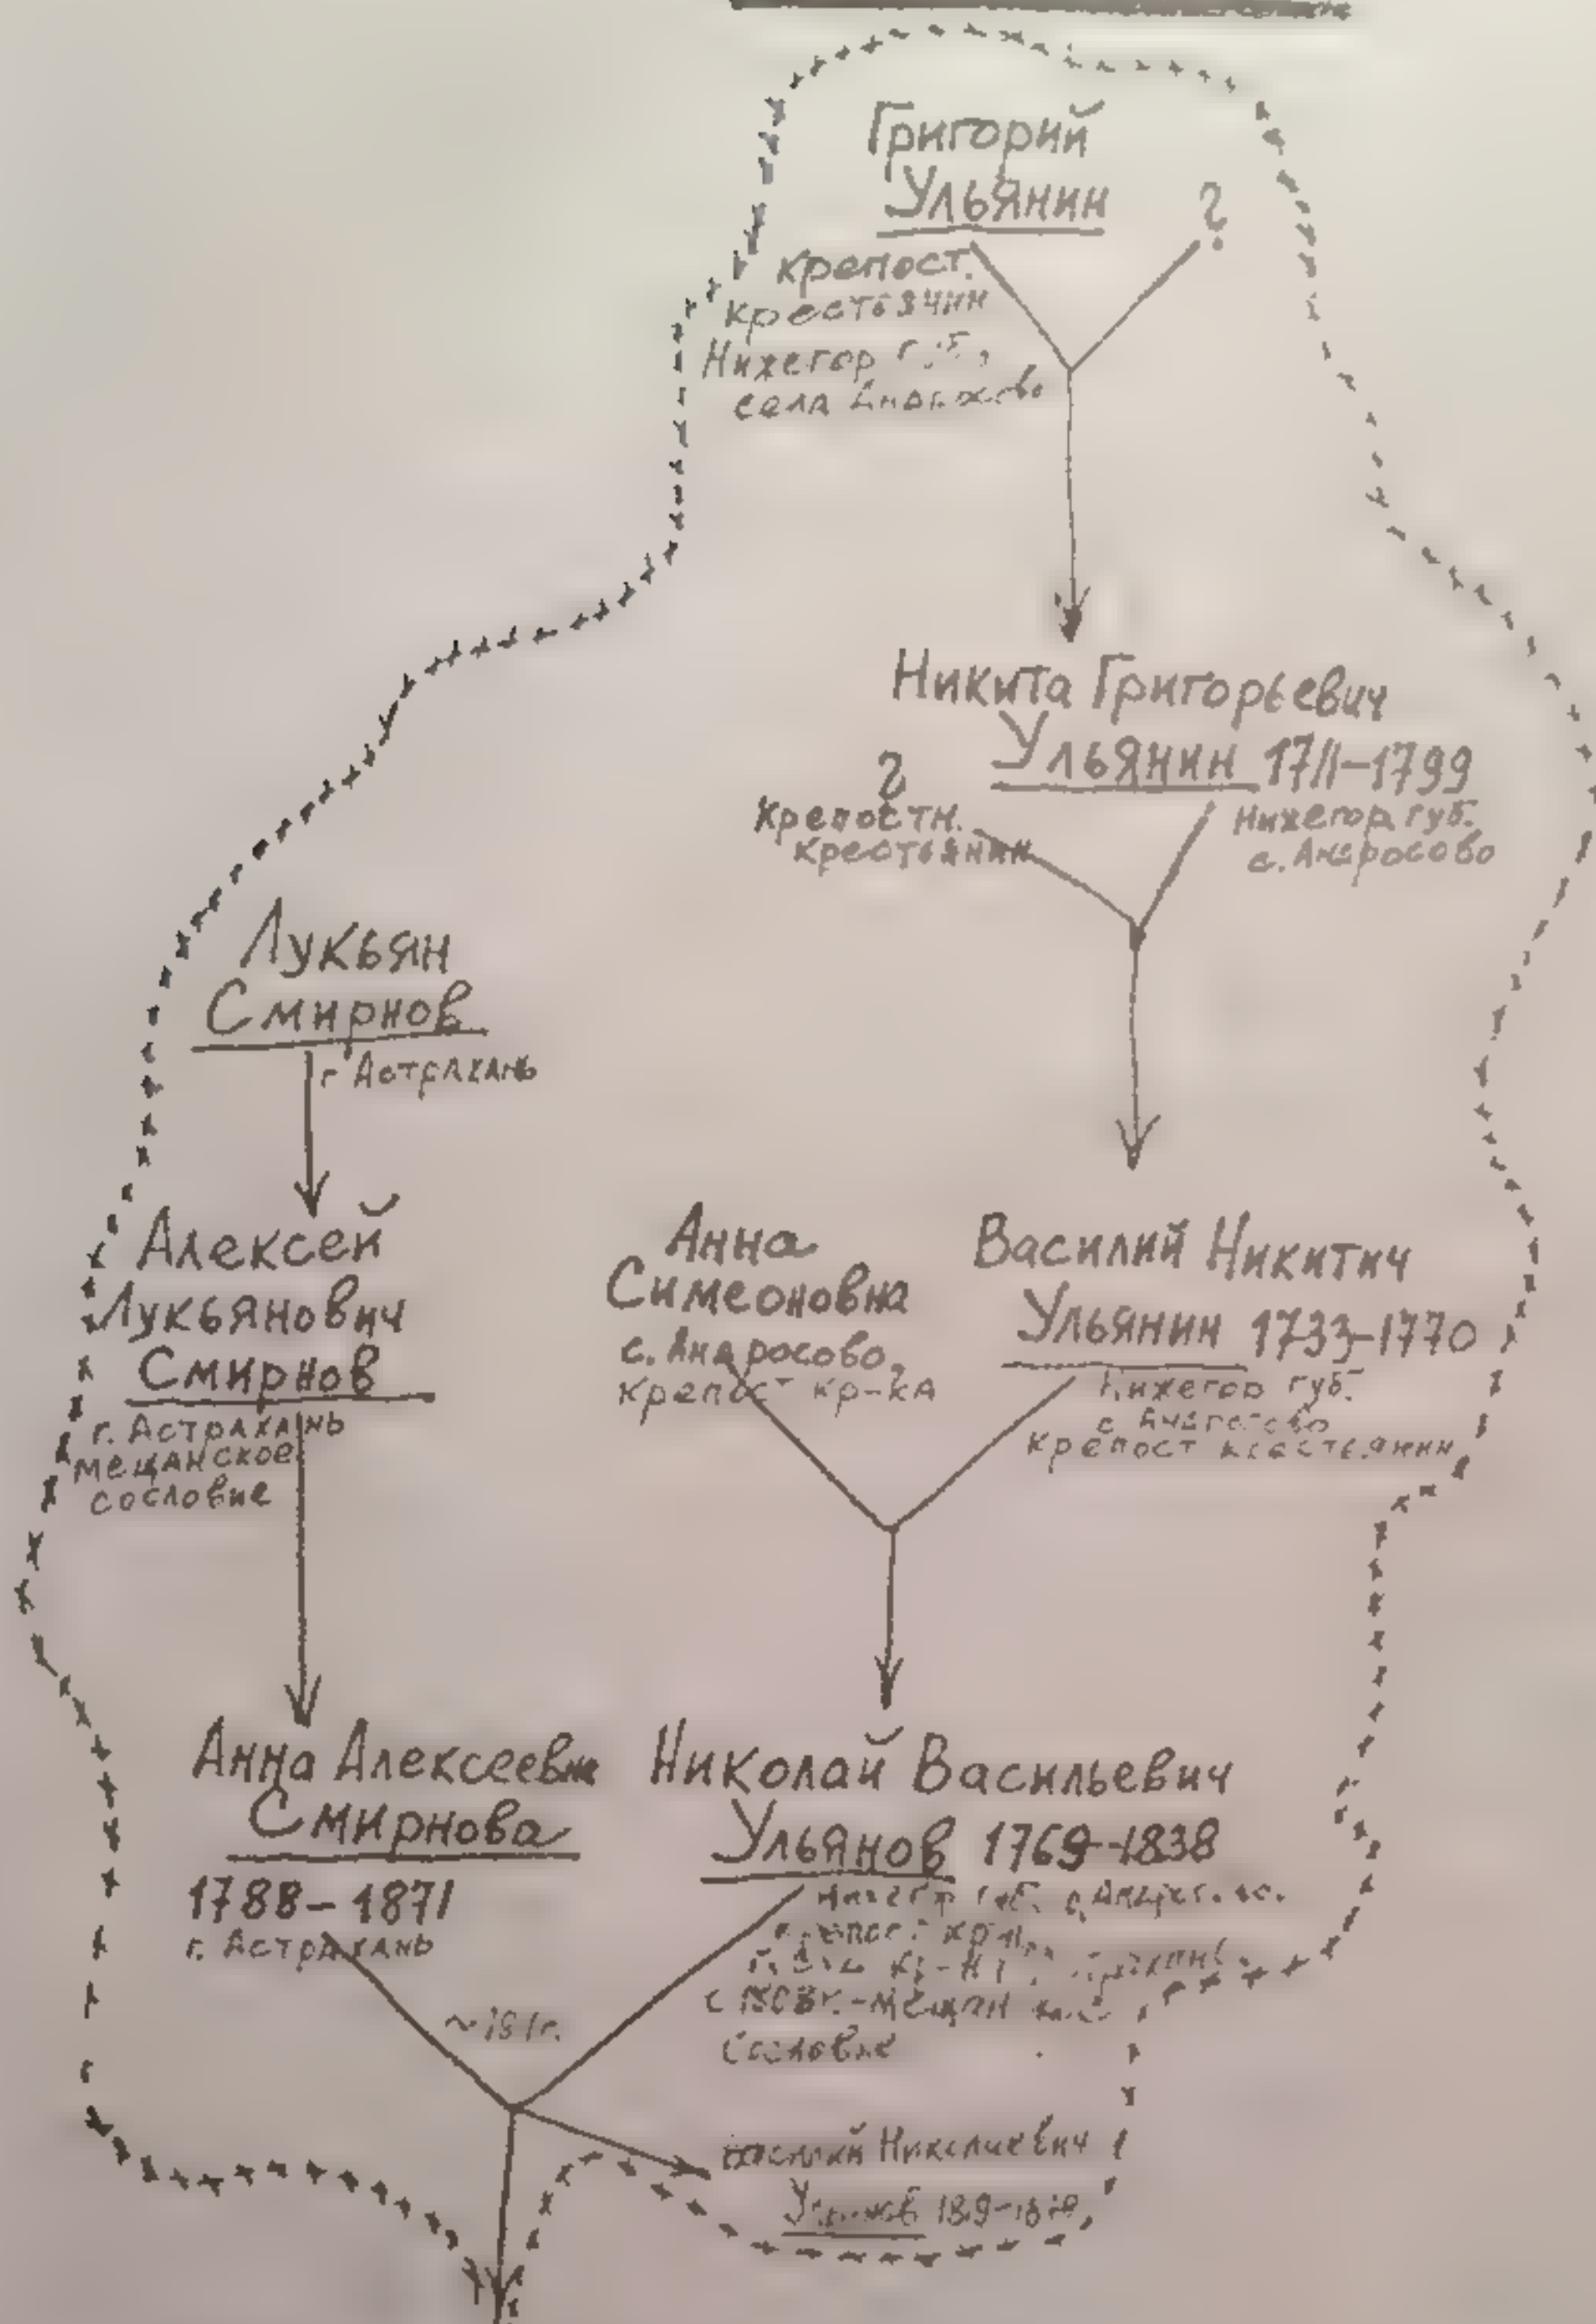 Григорий
Ульянин
?
крепост.
крестьянин
Нихегор губ,
села
Никита Григорьевич
Ульянин 1711-1799
?
Крепостн.
крестьянин
Нихегор губ.
с. Андросово
Лукьян
Смирнов
г Астрахань
Алексей
Лукьянович
Смирнов
г. Астрахань
мещанское
сословие
Анна
Симеоновна
с. Андросово,
крепост кр-ка
Василий Никитич
Ульянин 1733-1770
Нихегор губ.
с. Андросово
крепост крестьянин
Анна Алексеевна
Смирнова
1788-1871
г. Астрахань
Николай Васильевич
Ульянов 1769-1838
губ.
с 1808г.-мещан
сословие
Николаевич